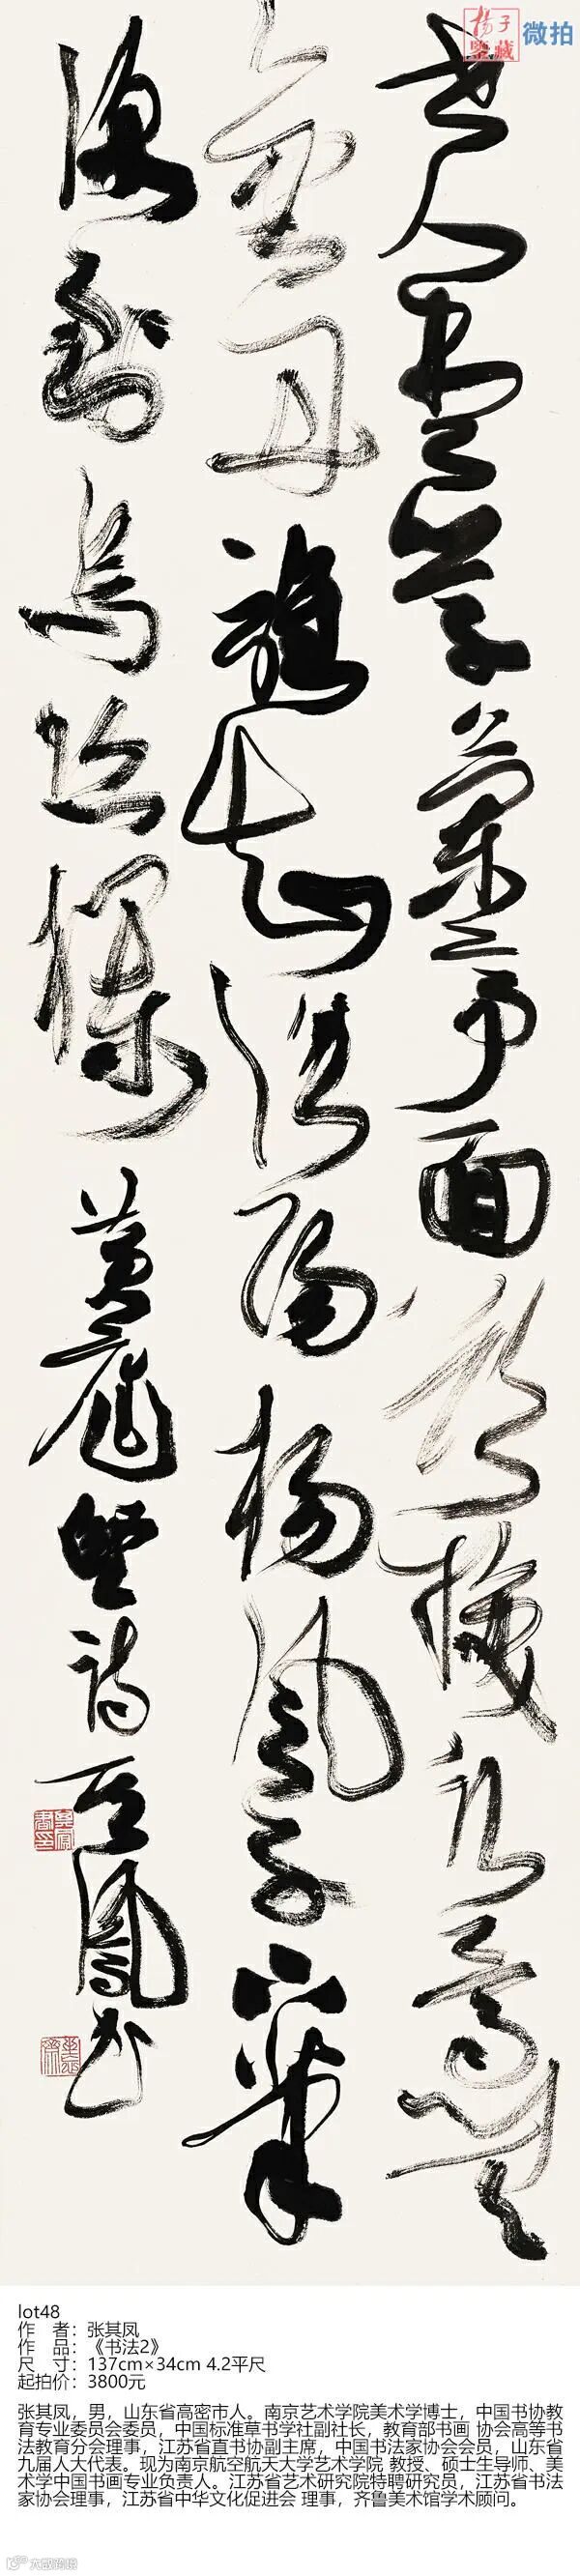 杨子鉴藏 微拍
世人盡學蘭亭面欲換凡骨無
金丹誰知洛陽楊風子下筆
便到烏絲欄 黃庭堅詩 其鳳書
lot48
作 者：张其凤
作 品：《书法2》
尺 寸：137cm×34cm 4.2平尺
起拍价：3800元
张其凤，男，山东省高密市人。南京艺术学院美术学博士，中国书协教
育专业委员会委员，中国标准草书学社副社长，教育部书画 协会高等书
法教育分会理事，江苏省直书协副主席，中国书法家协会会员，山东省
九届人大代表。现为南京航空航天大学艺术学院 教授、硕士生导师、美
术学中国书画专业负责人。江苏省艺术研究院特聘研究员，江苏省书法
家协会理事，江苏省中华文化促进会 理事，齐鲁美术馆学术顾问。